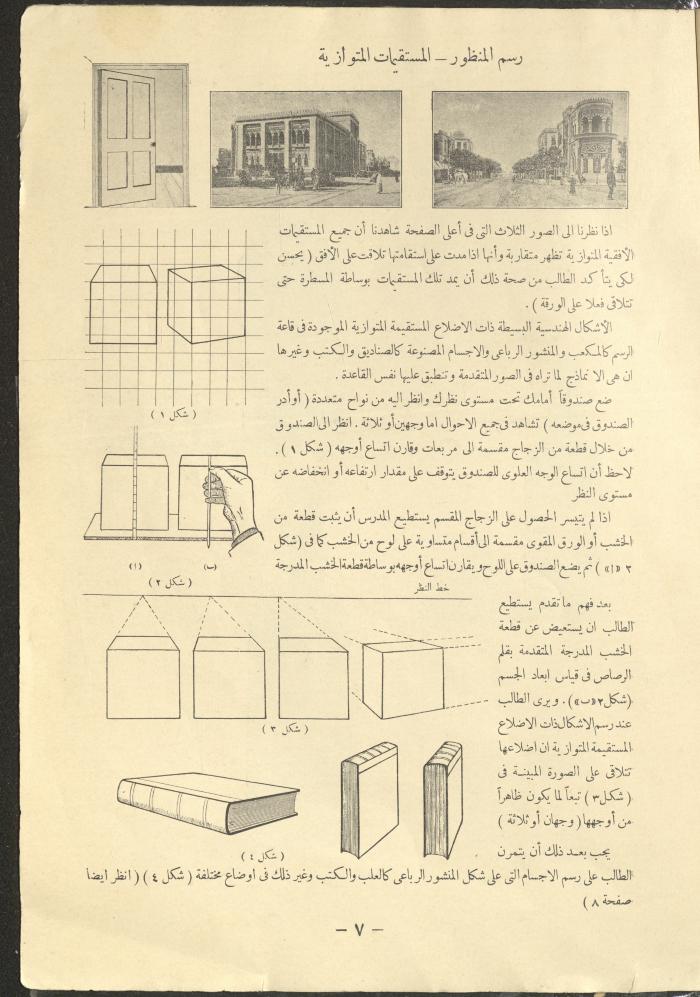 رسم المنظور — المستقيمات المتوازية
اذا نظرنا الى الصور الثلاث التى فى أعلى الصفحة شاهدنا أن جميع المستقيمات
الأفقية المتوازية تظهر متقاربة وأنها اذا مدت على استقامتها تلاقت على الأفق ( يحسن
لكى يتأكد الطالب من صحة ذلك أن يمد تلك المستقيمات بوساطة المسطرة حتى
تتلاقى فعلا على الورقة ) .
الأشكال الهندسية البسيطة ذات الاضلاع المستقيمة المتوازية الموجودة فى قاعة
الرسم كالمكعب والمنشور الرباعى والاجسام المصنوعة كالصناديق والكتب وغيرها
ان هى الا نماذج لما تراه فى الصور المتقدمة وتنطبق عليها نفس القاعدة .
ضع صندوقاً أمامك تحت مستوى نظرك وانظر اليه من نواح متعددة ( أو أدر
الصندوق فى موضعه ) تشاهد فى جميع الاحوال اما وجهين أو ثلاثة . انظر الى الصندوق
من خلال قطعة من الزجاج مقسمة الى مربعات وقارن اتساع أوجهه ( شكل ١ ) .
لاحظ أن اتساع الوجه العلوى للصندوق يتوقف على مقدار ارتفاعه أو انخفاضه عن
مستوى النظر
( شكل ١ )
اذا لم يتيسر الحصول على الزجاج المقسم يستطيع المدرس أن يثبت قطعة من
الخشب أو الورق المقوى مقسمة الى أقسام متساوية على لوح من الخشب كما فى ( شكل
٢ «ا» ) ثم يضع الصندوق على اللوح ويقارن اتساع أوجهه بوساطة قطعة الخشب المدرجة
(ا)
(ب)
( شكل ٢ )
خط النظر
بعد فهم ما تقدم يستطيع
الطالب ان يستعيض عن قطعة
الخشب المدرجة المتقدمة بقلم
الرصاص فى قياس ابعاد الجسم
( شكل ٢ «ب» ) . ويرى الطالب
عند رسم الاشكال ذات الاضلاع
المستقيمة المتوازية ان اضلاعها
تتلاقى على الصورة المبينة فى
( شكل ٣ ) تبعاً لما يكون ظاهراً
من أوجهها ( وجهان أو ثلاثة )
( شكل ٣ )
( شكل ٤ )
يجب بعد ذلك أن يتمرن
الطالب على رسم الاجسام التى على شكل المنشور الرباعى كالعلب والكتب وغير ذلك فى أوضاع مختلفة ( شكل ٤ ) ( انظر أيضاً
صفحة ٨ )
— ٧ —